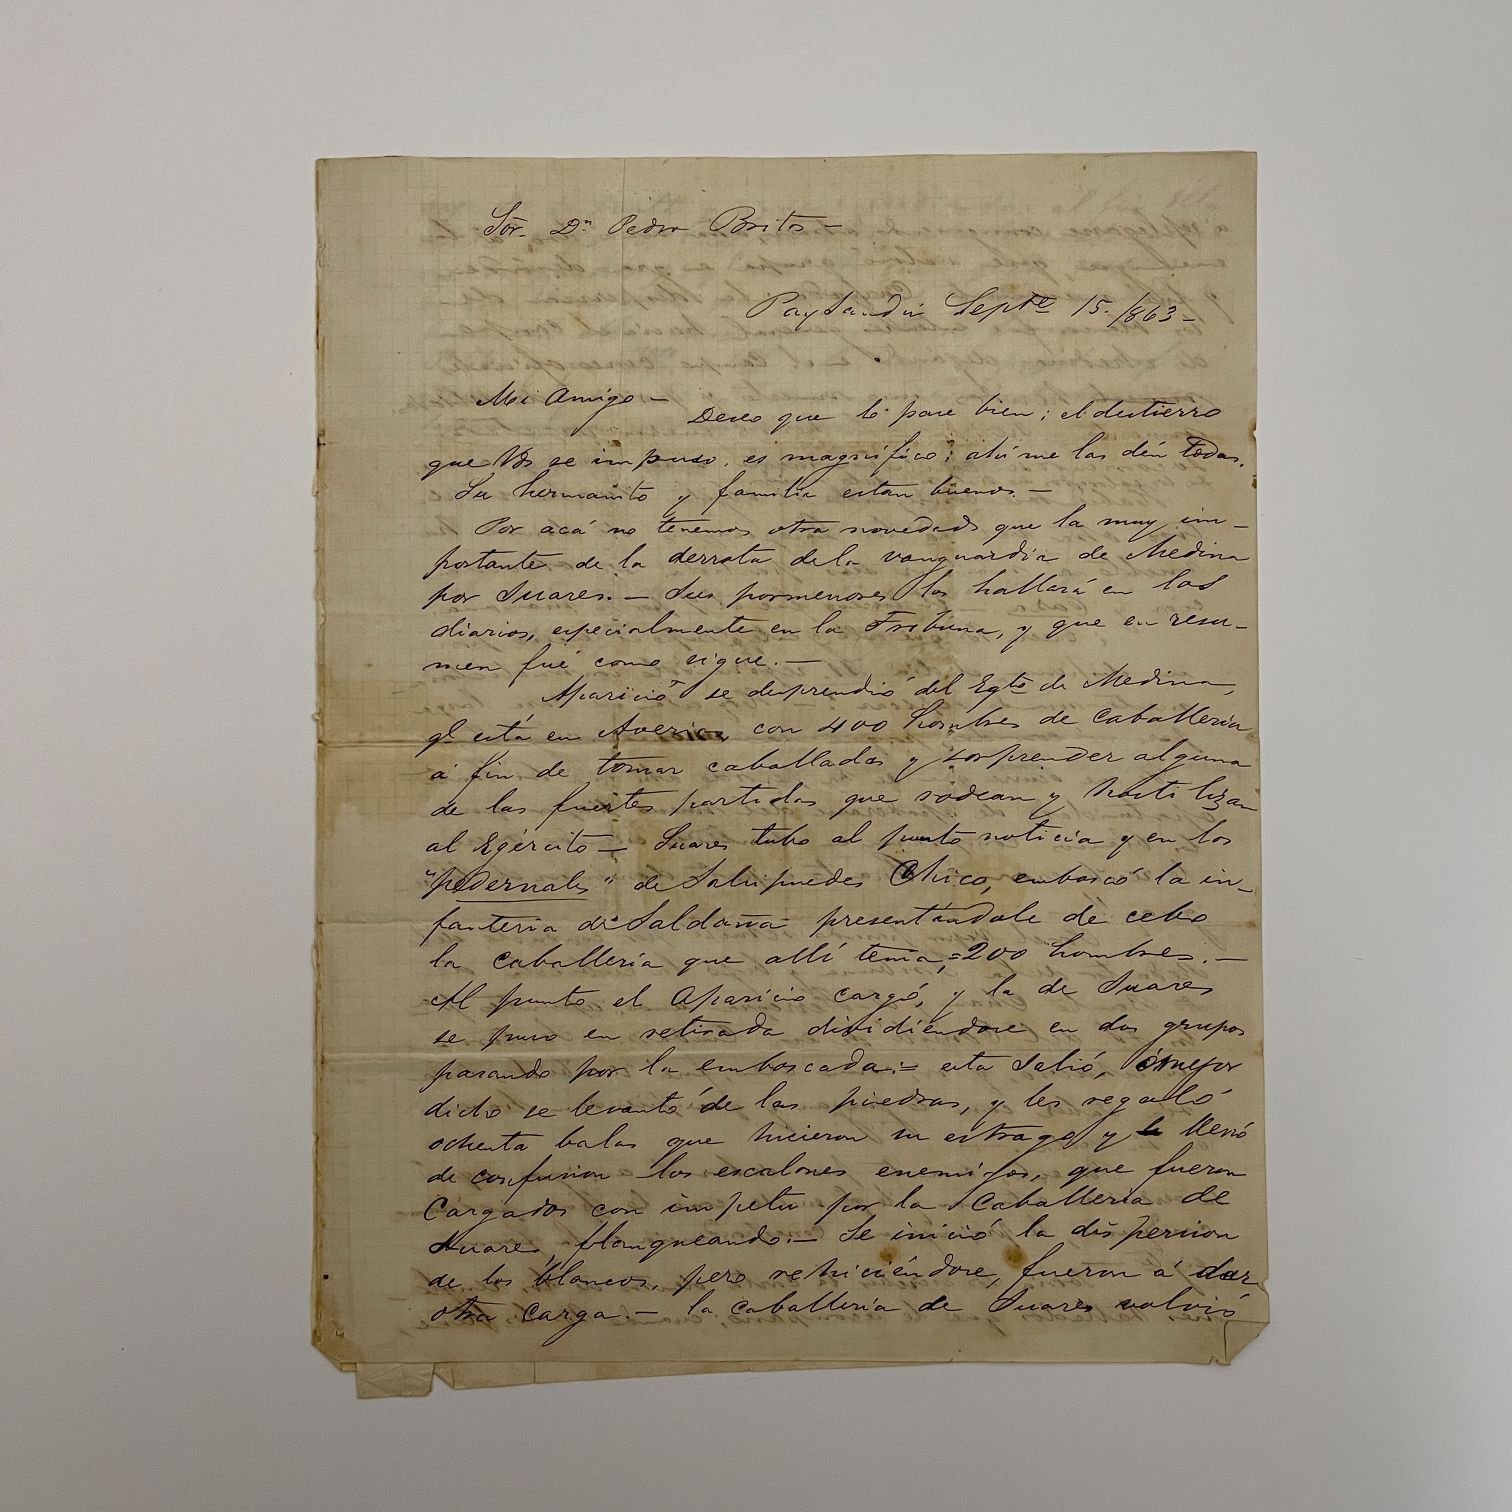 Sõr. Dn Pedro Brites —
Paysandú Septe 15./863—
Mi Amigo —
Deseo que lo pase bien; el destierro
que Vs se impuso, es magnifico; ahi me las dén todas.
Su hermanito y familia estan buenos. —
Por acá no tenemos otra novedad que la muy im-
portante de la derrota dela vanguardia de Medina
por Suares. — Sus pormenores los hallará en los
diarios, especialmente en la Tribuna, y que en resu-
men fué como sigue. —
Aparicio se desprendió del Egto de Medina,
ql está en Averias con 400 hombres de caballeria
á fin de tomar caballadas y sorprender alguna
de las fuertes partidas que rodean y hostilizan
al Egército — Suares tubo al punto noticia y en los
"pedernales" de Salsipuedes Chico, emboscó la in-
fanteria de Saldaña presentándole de cebo
la caballeria que allí tenia, =200 hombres. —
Al punto el Aparicio cargó, y la de Suares
se puso en retirada dividiéndose en dos grupos
pasando por la emboscada:= esta salió, ó mejor
dicho se levantó de las piedras, y les regaló
ochenta balas que hicieron su estrago y llenó
de confusion los escalones enemigos, que fueron
cargados con impetu por la caballeria de
Suares, flanqueando. — Se inició la dispersion
de los blancos, pero rehiciéndose, fueron á dar
otra carga. — la caballeria de Suares volvió